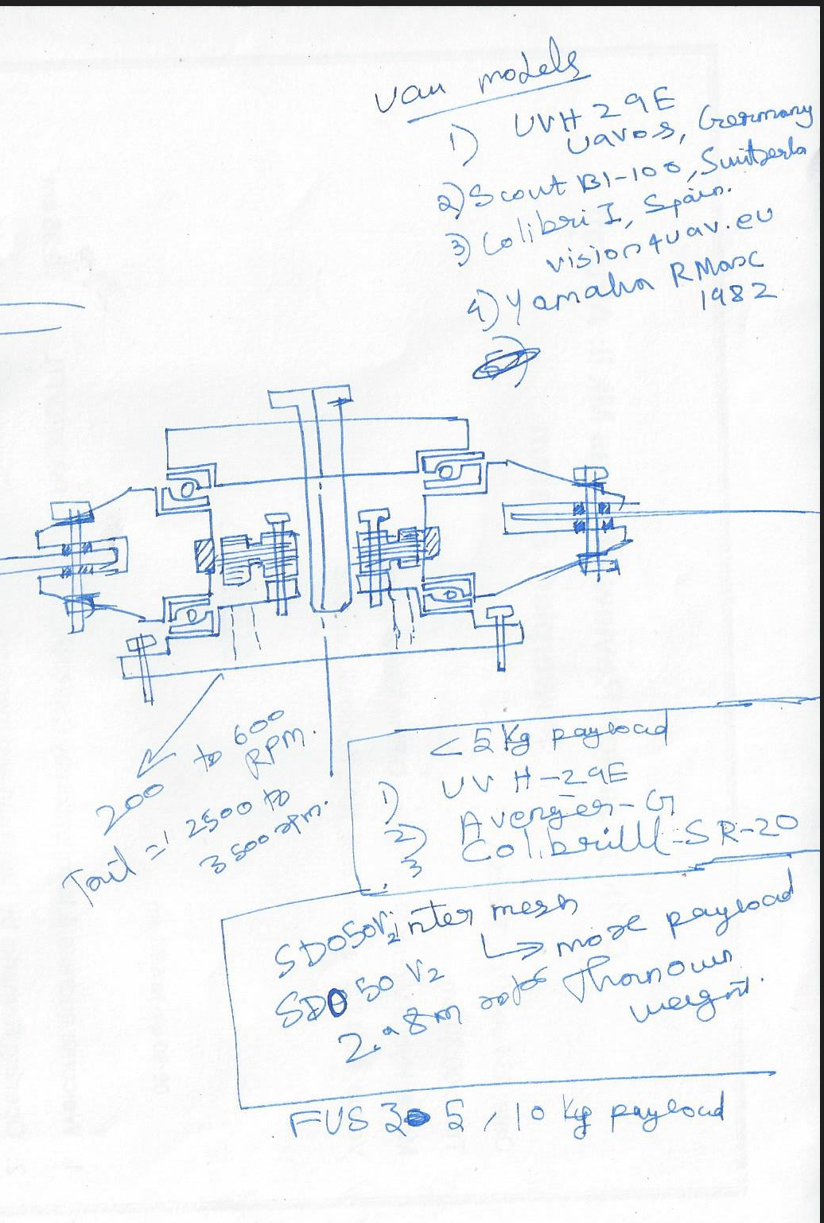 uav models
1) UVH 29E
uavos, Germany
2) Scout B1-100, Switzerla
3) Colibri I, Spain.
vision4uav.eu
4) Yamaha RMax
1982
200 to 600
RPM.
Tail = 2500 to
3500 rpm.
< 5 Kg payload
1) UVH-29E
2) Avenger-G
3 Colibri SR-20
SDO50V2 inter mesh
SDO 50 V2 ↳ more payload
2.8m rotor than own
weight.
FUS 3 5 / 10 kg payload